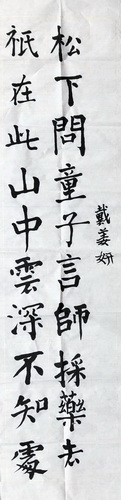 松下問童子言師採藥去
祇在此山中雲深不知處
戴姜妍